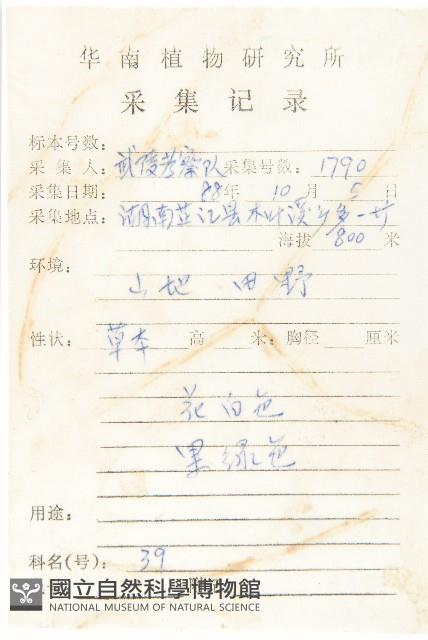 华南植物研究所
采集记录
标本号数：
采集人：武陵考察队 采集号数：1790
采集日期： 88年 10月 5日
采集地点：湖南芷江县木叶溪
海拔 800 米
环境：
山地 田野
性状：草本 高 米：胸径 厘米
花白色
果绿色
用途：
科名(号)：39
國立自然科學博物館
NATIONAL MUSEUM OF NATURAL SCIENCE